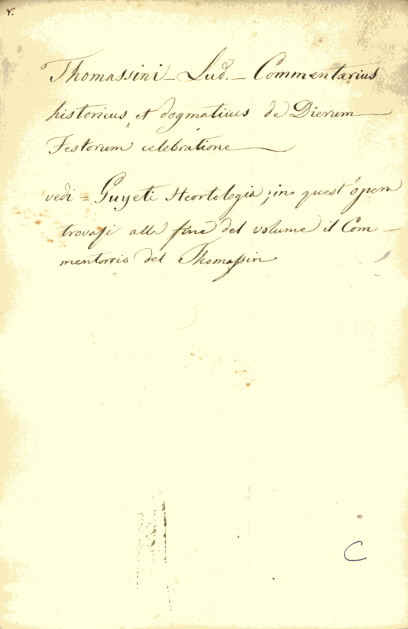 v.
Thomassini - Lud. - Commentarius
historicus, et dogmaticus de Dierum
Festorum celebratione
vedi = Guyeti Heortologia; in quest'opera
trovasi alla fine del volume il Com-
mentario del Thomassin
C